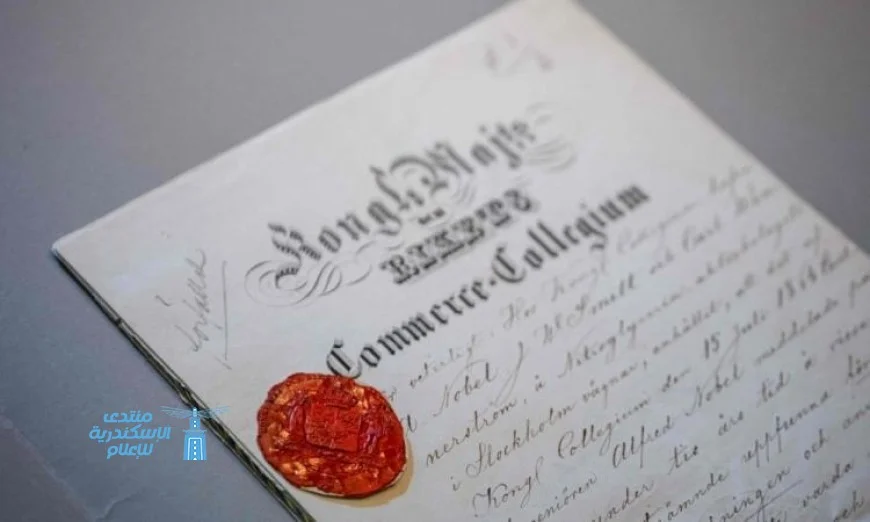 Kongl. Majts
och
RIKETS
Commerce-Collegium
förfalld
gör veterligt: Hos Kongl Collegium hafva
Nobel, J. W. Smitt och Carl
nerström, å Nitroglycerin aktiebolagets
i Stockholm vägnar, anhållit, att det af
Kongl Collegium den 15 Juli 1864
Alfred Nobel meddelade
under tio års tid å
nämnde uppfinna
ningen och
varda
och
منتدى
الإسكندرية
للإعلام